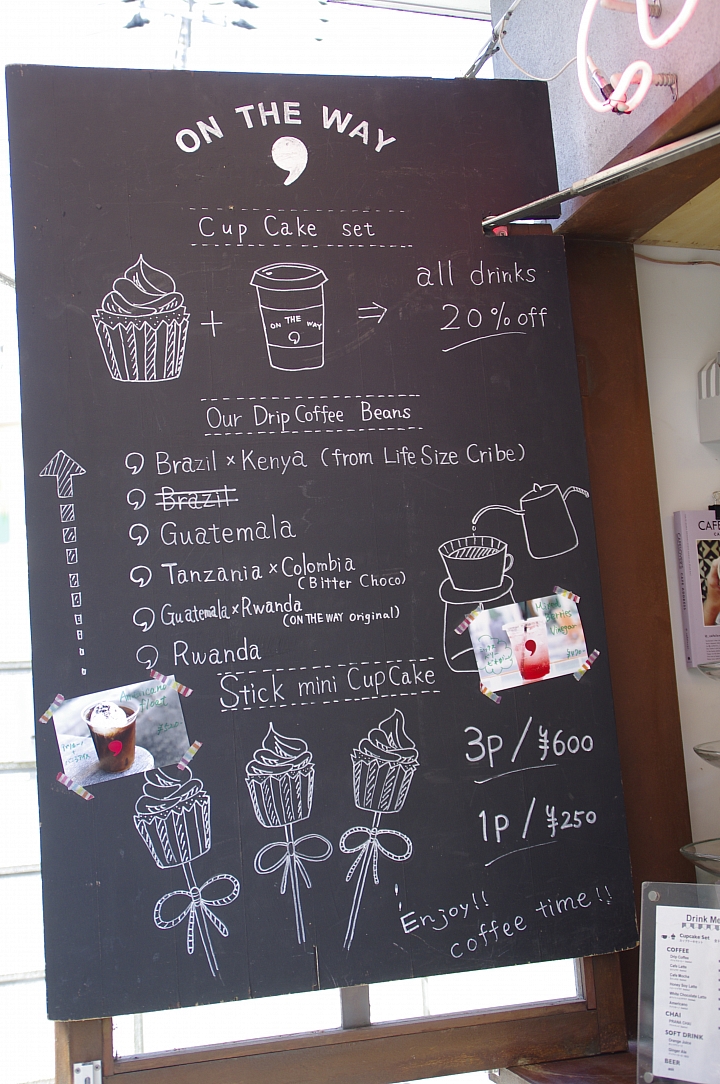 ON THE WAY
Cup Cake set
all drinks
20% off
ON THE WAY
Our Drip Coffee Beans
Brazil × Kenya (from Life Size Cribe)
Brazil
Guatemala
Tanzania × Colombia
(Bitter Choco)
Guatemala × Rwanda
(ON THE WAY original)
Rwanda
Stick mini CupCake
Americano
float
Vinegar
3p / ¥600
1p / ¥250
Enjoy!!
coffee time!!
CAFE
Drink Me
Cupcake Set
COFFEE
Drip Coffee
Cafe Latte
Cafe Mocha
Honey Soy Latte
White Chocolate Latte
Americano
CHAI
SOFT DRINK
Orange Juice
Ginger Ale
BEER